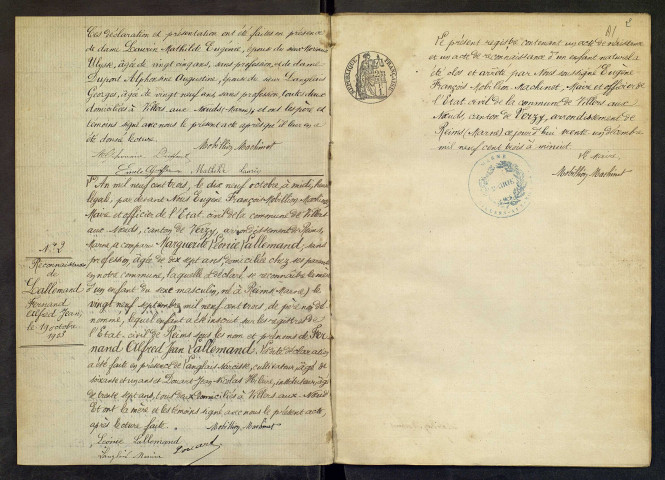 Ces déclaration et présentation ont été faites en présence
de dame Mathilde Eugénie, épouse du sieur
Ulysse, âgée de vingt cinq ans, sans profession, et de dame
Dupont Alphonsine Augustine, épouse du sieur Langlais
George, âgée de vingt neuf ans sans profession, toutes deux
domiciliées à Villers aux Nœuds (Marne) et ont les père et
témoins signé avec nous le présent acte après qu'il leur en a
été donné lecture.
Mobillion Machinot
Alphonsine Dupont
Mathilde
L'An mil neuf cent trois, le dix neuf octobre, à heures
légale, par devant Nous Eugène François Mobillion Machinot
Maire et officier de l'Etat civil de la commune de Villers
aux Nœuds, canton de Verzy, arrondissement de Reims,
Marne, a comparu Marguerite Léonie Lallemand, sans
profession, âgée de dix sept ans, domiciliée chez ses parents
en notre commune, laquelle a déclaré se reconnaître la mère
d'un enfant du sexe masculin, né à Reims (Marne) le
vingt neuf septembre mil neuf cent trois, de père non dé
nommé, lequel enfant a été inscrit sur les registres de
l'Etat civil de Reims sous les nom et prénoms de Fer
nand Alfred Jean Lallemand. Cette déclaration
a été faite en présence de Langlais Narcisse, cultivateur, âgé de
soixante et un ans et Douart Jean Nicolas Hilaire, instituteur, âgé
de trente sept ans, tous deux domiciliés à Villers aux Nœuds
Et ont la mère et les témoins signé avec nous le présent acte,
après lecture faite. Mobillion Machinot
Léonie Lallemand
Douart
N° 2
Reconnaissance
de
Lallemand
Fernand
Alfred Jean,
le 19 octobre
1903
2
Le présent registre contenant un acte de naissance
et un acte de reconnaissance d'un enfant naturel a
été clos et arrêté par Nous soussigné Eugène
François Mobillion Machinot, Maire et officier de
l'Etat civil de la commune de Villers aux
Nœuds, canton de Verzy, arrondissement de
Reims (Marne) ce jourd'hui trente un décembre
mil neuf cent trois à minuit.
Le Maire
Mobillion Machinot